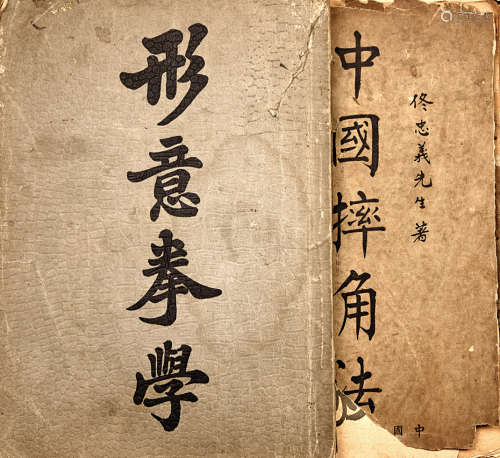 形意拳學
中國摔角法
佟忠義先生著
國中